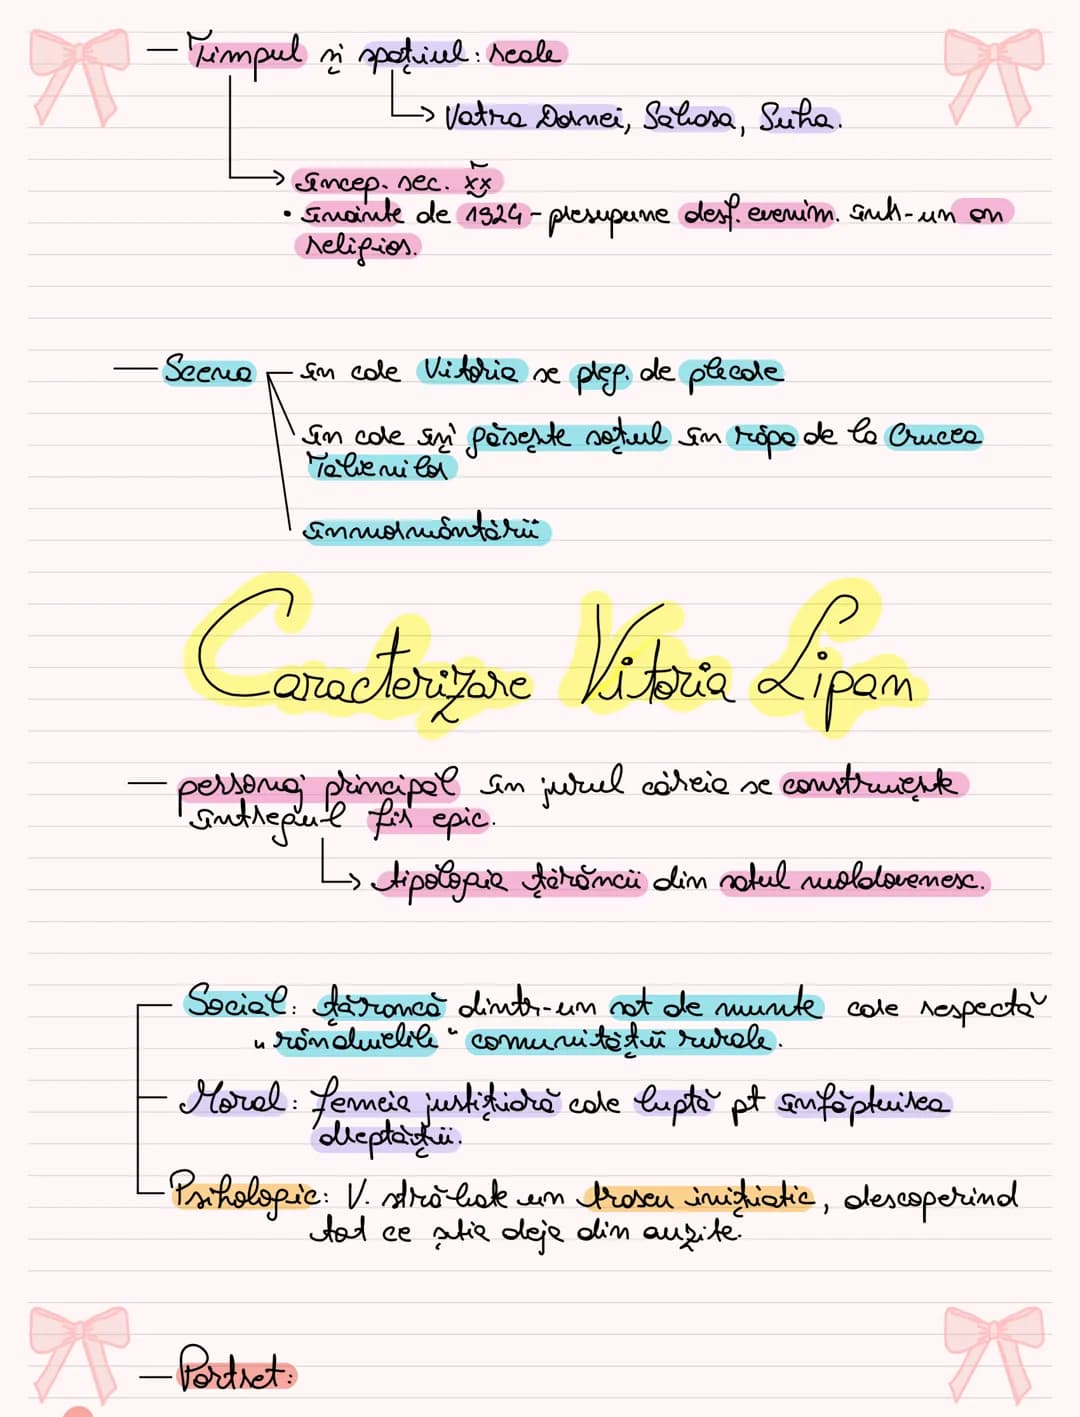 — Timpul și spațiul: reale
→ Vatra Dornei, Sabasa, Suha.
→ încep. sec. XX
• înainte de 1924 - presupune desf. evenim. într-un an
religios.
— Scena — în care Vitoria se preg. de plecare
în care își găsește soțul în râpa de la Crucea
Talienilor
înmormântării
Caracterizare Vitoria Lipan
— personaj principal în jurul căreia se construiește
întregul fir epic.
→ tipologia țărăncii din satul moldovenesc.
Social: țărancă dintr-un sat de munte care respectă
„rânduielile" comunității rurale.
Moral: femeia justițiară care luptă pt înfăptuirea
dreptății.
Psihologic: V. străbate un traseu inițiatic, descoperind
tot ce știa deja din auzite.
— Portret: